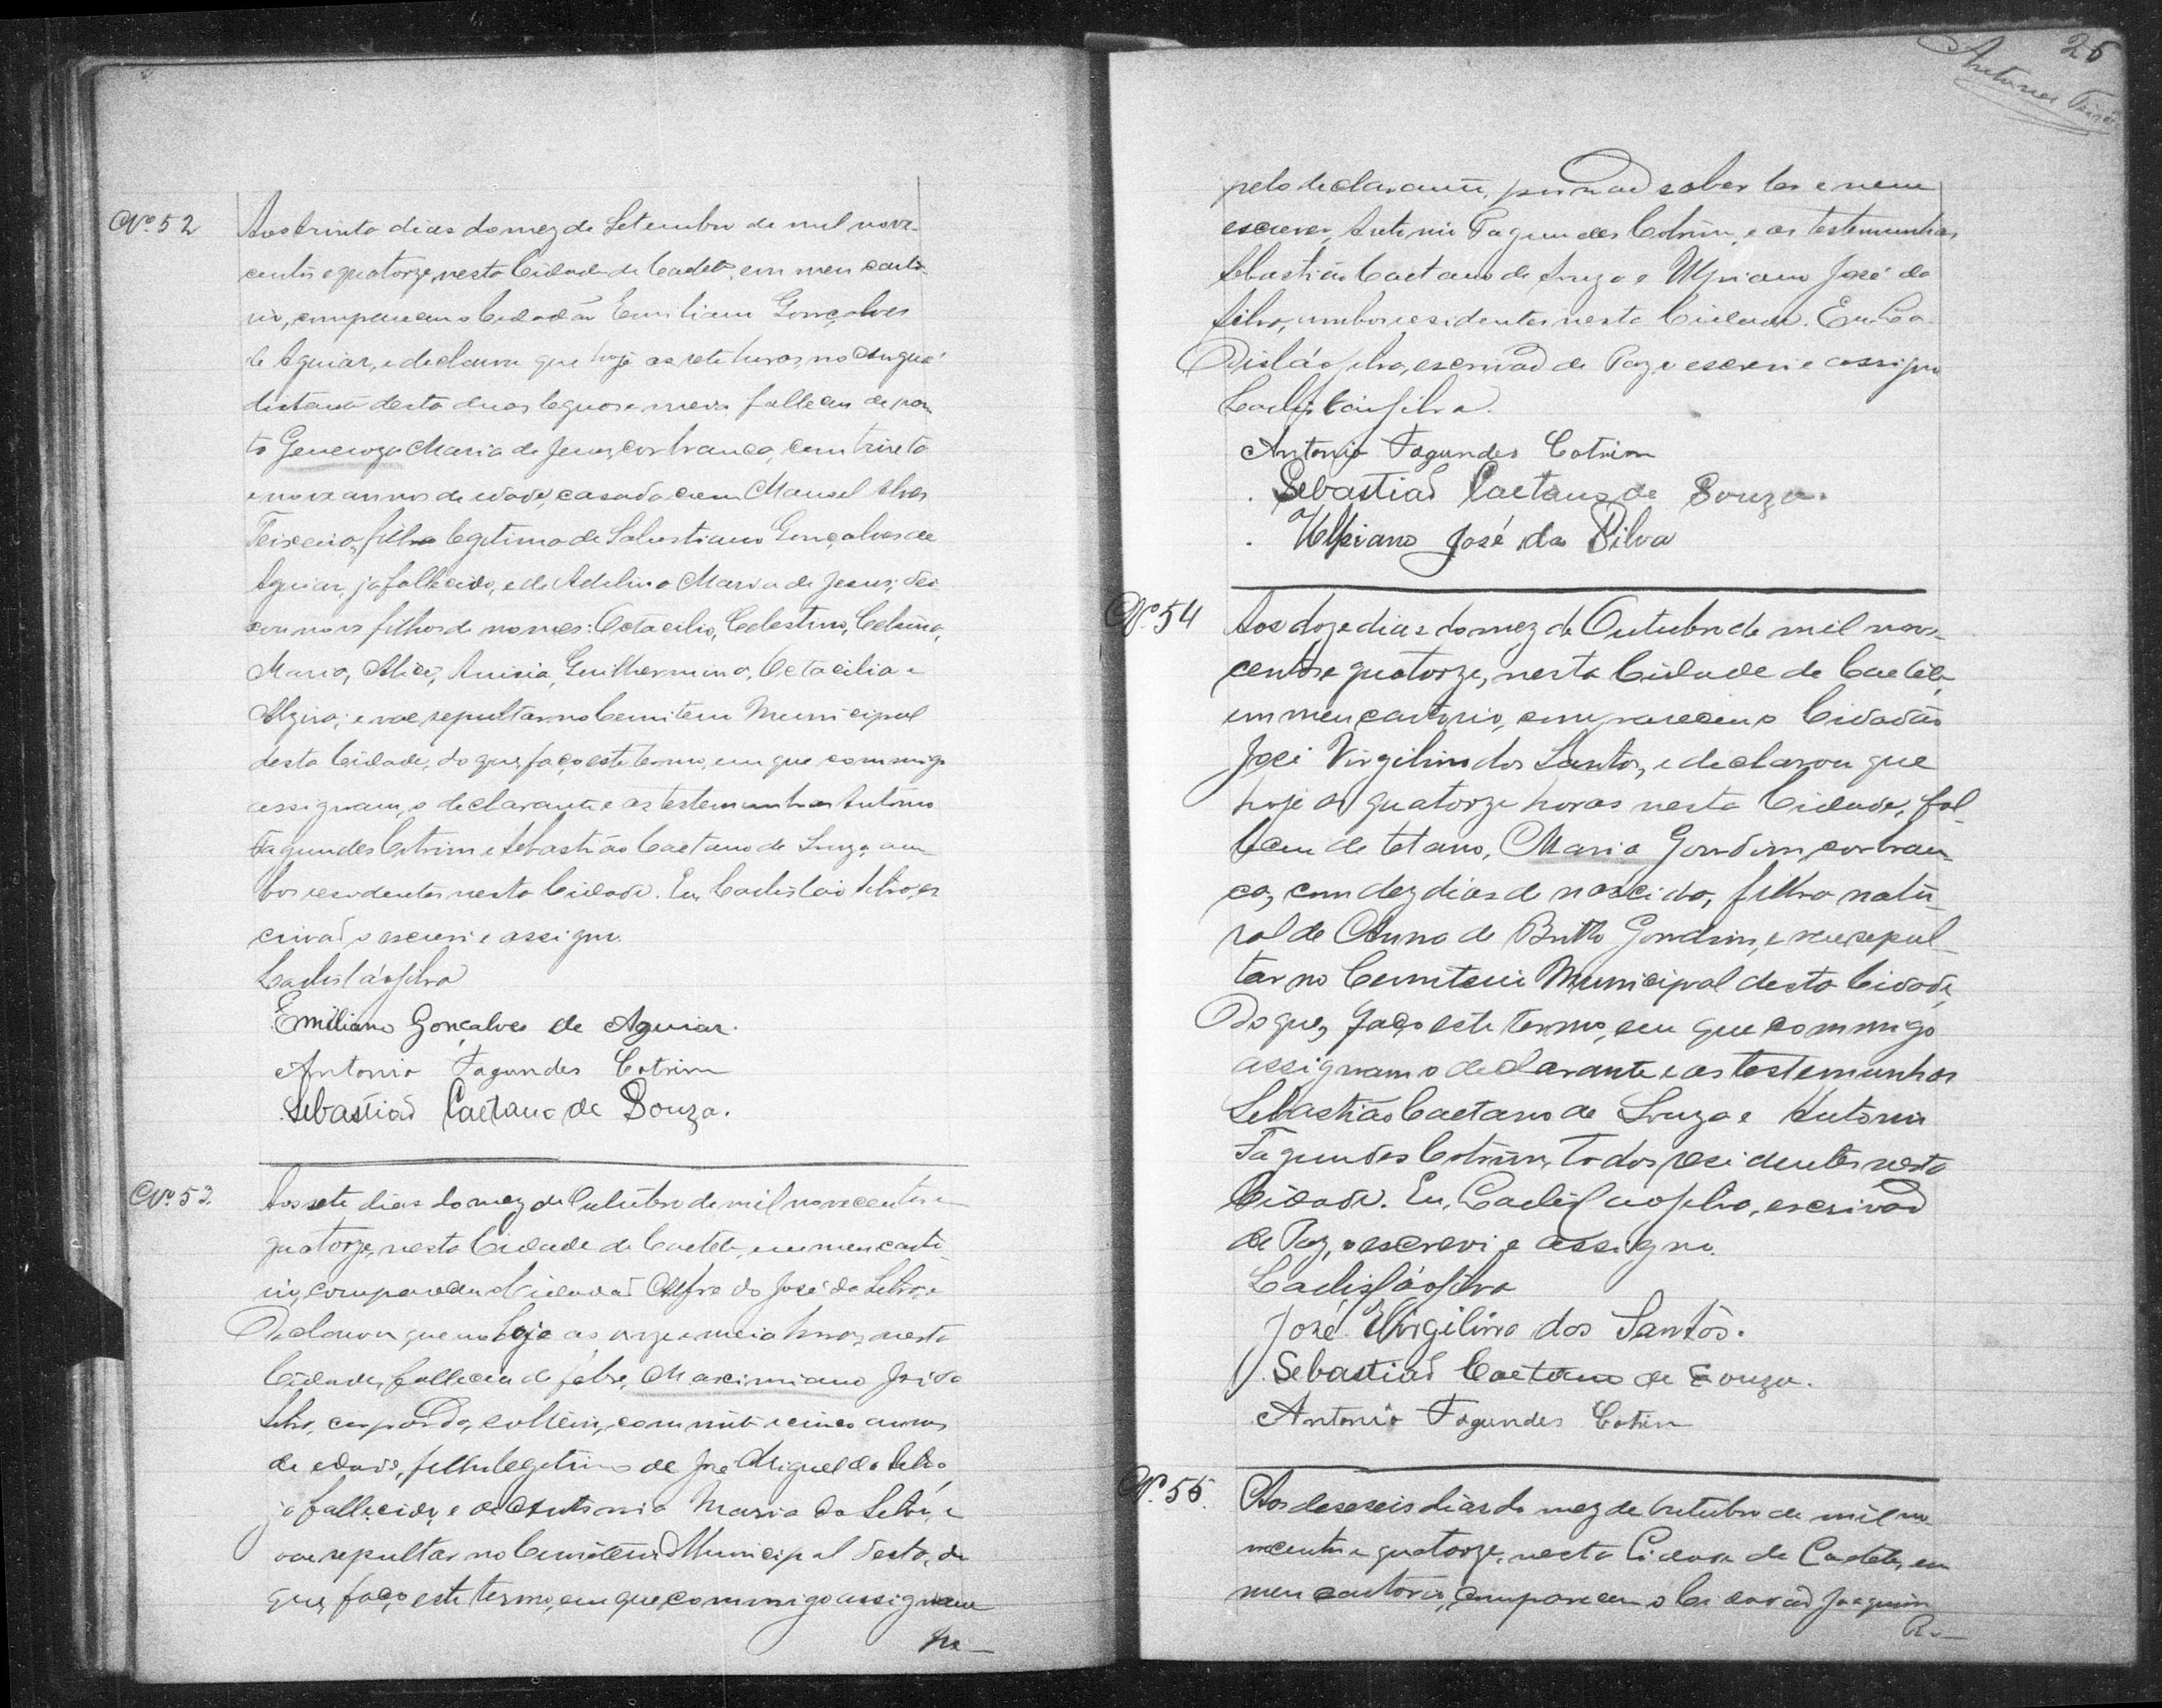 Nº 52
Aos trinta dias do mez de Setembro de mil nove-
centos e quatorze, nesta Cidade de Caeteté, em meu carto-
rio, compareceu o Cidadão Emiliano Gonçalves
de Aguiar, e declarou que hoje as sete horas, no
distante desta duas leguas e meia falleceu de par-
to Generoza Maria de Jesus, cor branca, com trinta
e nove annos de idade, casada com Manoel Alves
Teixeira, filha legitima de Salustiano Gonçalves de
Aguiar, ja fallecido, e de Adelina Maria de Jesus; dei-
xou nove filhos de nomes: Octacilio, Celestino, Celsina,
Maria, Alice, Anisia, Guilhermina, Octacilia e
Alzira; e vae sepultar no Cemiterio Municipal
desta Cidade, do que, faço este termo, em que commigo
assignam, o declarante e as testemunhas Antonio
Fagundes Cotrim e Sebastião Caetano de Souza, am-
bos residentes nesta Cidade. Eu, Ladisláo Silva, es
crivão o escrevi e assigno.
Ladisláo Silva
Emiliano Gonçalves de Aguiar.
Antonio Fagundes Cotrim
Sebastião Caetano de Souza.
Nº 53.
Aos sete dias do mez de Outubro de mil novecentos e
quatorze, nesta Cidade de Caeteté, em meu carto-
rio, compareceu o Cidadão Alfredo José da Silva, e
Declarou, que hoje as onze e meia horas, nesta
Cidade, falleceu de febre, Maximiano José da
Silva, cor parda, solteiro, com vinte e cinco annos
de edade, filho legitimo de José Miguel da Silva,
já fallecido, e de Antonia Maria da Silva, e
vae sepultar no Cemiterio Municipal desta, do
que, faço este termo, em que commigo assignam
pe-
25
Antunes
pelo declarante, por não saber ler e nem
escrever, Antonio Fagundes Cotrim, e as testemunhas
Sebastião Caetano de Souza e Ulpiano José da
Silva, ambos residentes nesta Cidade. Eu, La-
Disláo Silva, escrivão de Paz, o escrevi e assigno
Ladisláo Silva.
Antonio Fagundes Cotrim
Sebastião Caetano de Souza.
Ulpiano José da Silva
Nº 54
Aos doze dias do mez de Outubro de mil nove-
centos e quatorze, nesta Cidade de Caeteté,
em meu cartorio, compareceu o Cidadão
José Virgilino dos Santos, e declarou que
hoje as quatorze horas nesta Cidade, fal-
leceu de tetano, Maria Gondim, cor bran-
ca, com dez dias de nascida, filha natu-
ral de Anna de Britto Gondim, e vae sepul-
tar no Cemiterio Municipal desta Cidade,
Do que, faço este termo, em que commigo
assignam o declarante e as testemunhas
Sebastião Caetano de Souza e Antonio
Fagundes Cotrim, todos residentes nesta
Cidade. Eu, Ladisláo Silva, escrivão
de Paz, o escrevi e assigno.
Ladisláo Silva
José Virgilino dos Santos.
Sebastião Caetano de Souza.
Antonio Fagundes Cotrim
Nº 55.
Aos deseseis dias do mez de Outubro de mil no-
vecentos e quatorze, nesta Cidade de Caeteté, em
meu cartorio, compareceu o Cidadão Joaquim